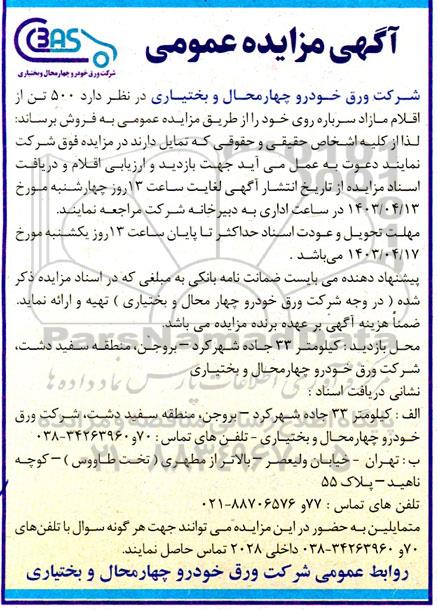 3BAS
شرکت ورق خودرو چهارمحال و بختیاری
آگهی مزایده عمومی
شرکت ورق خودرو چهارمحال و بختیاری در نظر دارد ۵۰۰ تن از
اقلام مازاد سرباره روی خود را از طریق مزایده عمومی به فروش برساند:
لذا از کلیه اشخاص حقیقی و حقوقی که تمایل دارند در مزایده فوق شرکت
نمایند دعوت به عمل می آید جهت بازدید و ارزیابی اقلام و دریافت
اسناد مزایده از تاریخ انتشار آگهی لغایت ساعت ۱۳ روز چهارشنبه مورخ
۱۴۰۳/۰۴/۱۳ در ساعت اداری به دبیرخانه شرکت مراجعه نمایند.
مهلت تحویل و عودت اسناد حداکثر تا پایان ساعت ۱۳ روز یکشنبه مورخ
۱۴۰۳/۰۴/۱۷ می‌باشد .
پیشنهاد دهنده می بایست ضمانت نامه بانکی به مبلغی که در اسناد مزایده ذکر
شده ( در وجه شرکت ورق خودرو چهار محال و بختیاری ) تهیه و ارائه نماید.
ضمناً هزینه آگهی بر عهده برنده مزایده می باشد.
محل بازدید : کیلومتر ۳۳ جاده شهرکرد – بروجن، منطقه سفید دشت،
شرکت ورق خودرو چهارمحال و بختیاری
نشانی دریافت اسناد :
الف : کیلومتر ۳۳ جاده شهرکرد – بروجن، منطقه سفید دشت، شرکت ورق
خودرو چهارمحال و بختیاری - تلفن های تماس : ۷۰ و ۳۴۲۶۳۹۶۰-۰۳۸
ب : تهران - خیابان ولیعصر – بالاتر از مطهری ( تخت طاووس ) – کوچه
ناهید – پلاک ۵۵
تلفن های تماس : ۷۷ و ۸۸۷۰۶۵۷۶-۰۲۱
متمایلین به حضور در این مزایده می توانند جهت هر گونه سوال با تلفن‌های
۷۰ و ۳۴۲۶۳۹۶۰-۰۳۸ داخلی ۲۰۲۸ تماس حاصل نمایند.
روابط عمومی شرکت ورق خودرو چهارمحال و بختیاری
ParsNamadData